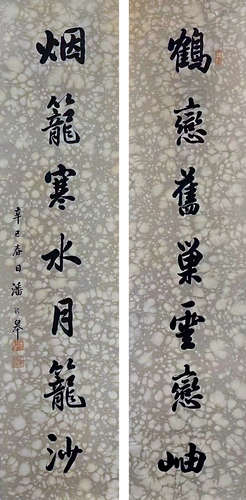 鶴戀舊巢雲戀岫
烟籠寒水月籠沙
辛巳春日潘龄皋